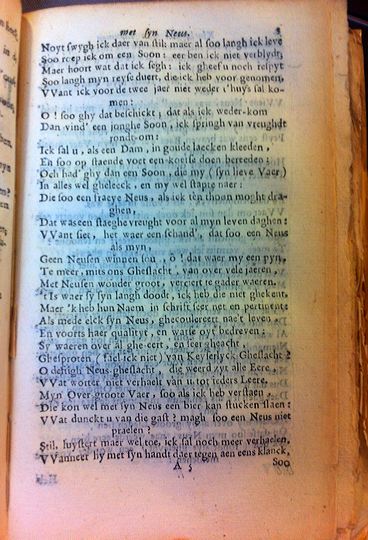 met syn Neus.
Noyt swygh ick daer van stil maer al soo langh ick leve
Soo roep ick om een Soon: eer ben ick niet verblydt,
Maer hoort wat dat ick segh: ick gheef u noch respyt
Soo langh myn reyse duert, die ick heb voor genomen,
VVant ick voor de twee jaer niet weder 'thuys sal ko-
men:
O! soo ghy dat beschickt, dat als ick weder-kom
Dan vind' een jonghe Soon, ick springh van vreughdt
rondt-om:
Ick sal u, als een Dam, in goude laecken kleeden,
En soo op staende voet een-koetse doen bereeden;
Och had' ghy dan een Soon, die my (syn lieve Vaer)
In alles wel gheleeck, en my wel stapte naer:
Die soo een fraeye Neus, als ick ten thoon moght dra-
ghen,
Dat was een staeghe vreught voor al myn leven daghen:
VVant siet, het waer een schand', dat soo een Neus
als myn,
Geen Neusen winnen sou, ô! dat waer my een pyn,
Te meer, mits ons Gheslacht, van over vele jaeren,
Met Neusen wonder groot, verciert te gader waeren.
't Is waer sy syn langh doodt, ick heb die niet ghekent,
Maer 'k heb hun Naem in schrift seer net en pertinente
Als mede elck syn Neus, gheconterfeyt nae't leven,
En voorts haer qualityt, en watse oyt bedreven:
Sy waeren over al ghe-eert, en seer gheacht,
Ghesproten (fael ick niet) van Keyserlyck Gheslacht?
O deftigh Neus-gheslacht, die weerd zyt alle Eere,
VVat wort'er niet verhaelt van u tot ieders Leere.
Myn Over-groote Vaer, soo als ick heb verstaen,
Die kon wel met syn Neus een bier kan stucken slaen:
VVat dunckt u van die gast? magh soo een Neus niet
praelen?
Stil, luystert maer wel toe, ick sal noch meer verhaelen,
VVanneer hy met syn handt daer tegen aen eens klanck,
A 3
Soo